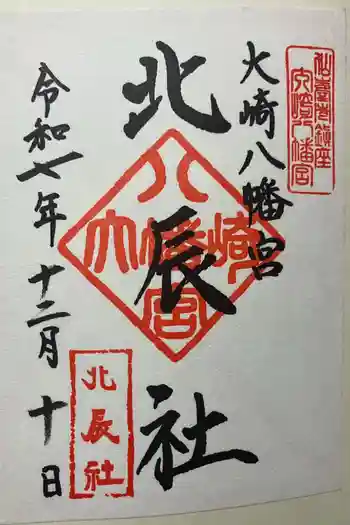 仙臺市鎮座
大崎八幡宮
大崎八幡宮
北辰社
八幡宮
大
崎
令和七年十二月十日
北辰社